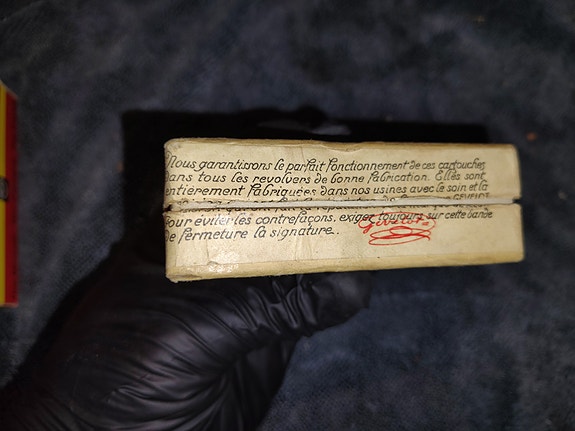 Nous garantissons le parfait fonctionnement de ces cartouches
dans tous les revolvers de bonne fabrication. Elles sont
entièrement fabriquées dans nos usines avec le soin et la
GEVELOT
Pour éviter les contrefaçons, exiger toujours sur cette bande
de fermeture la signature..
Gévelot